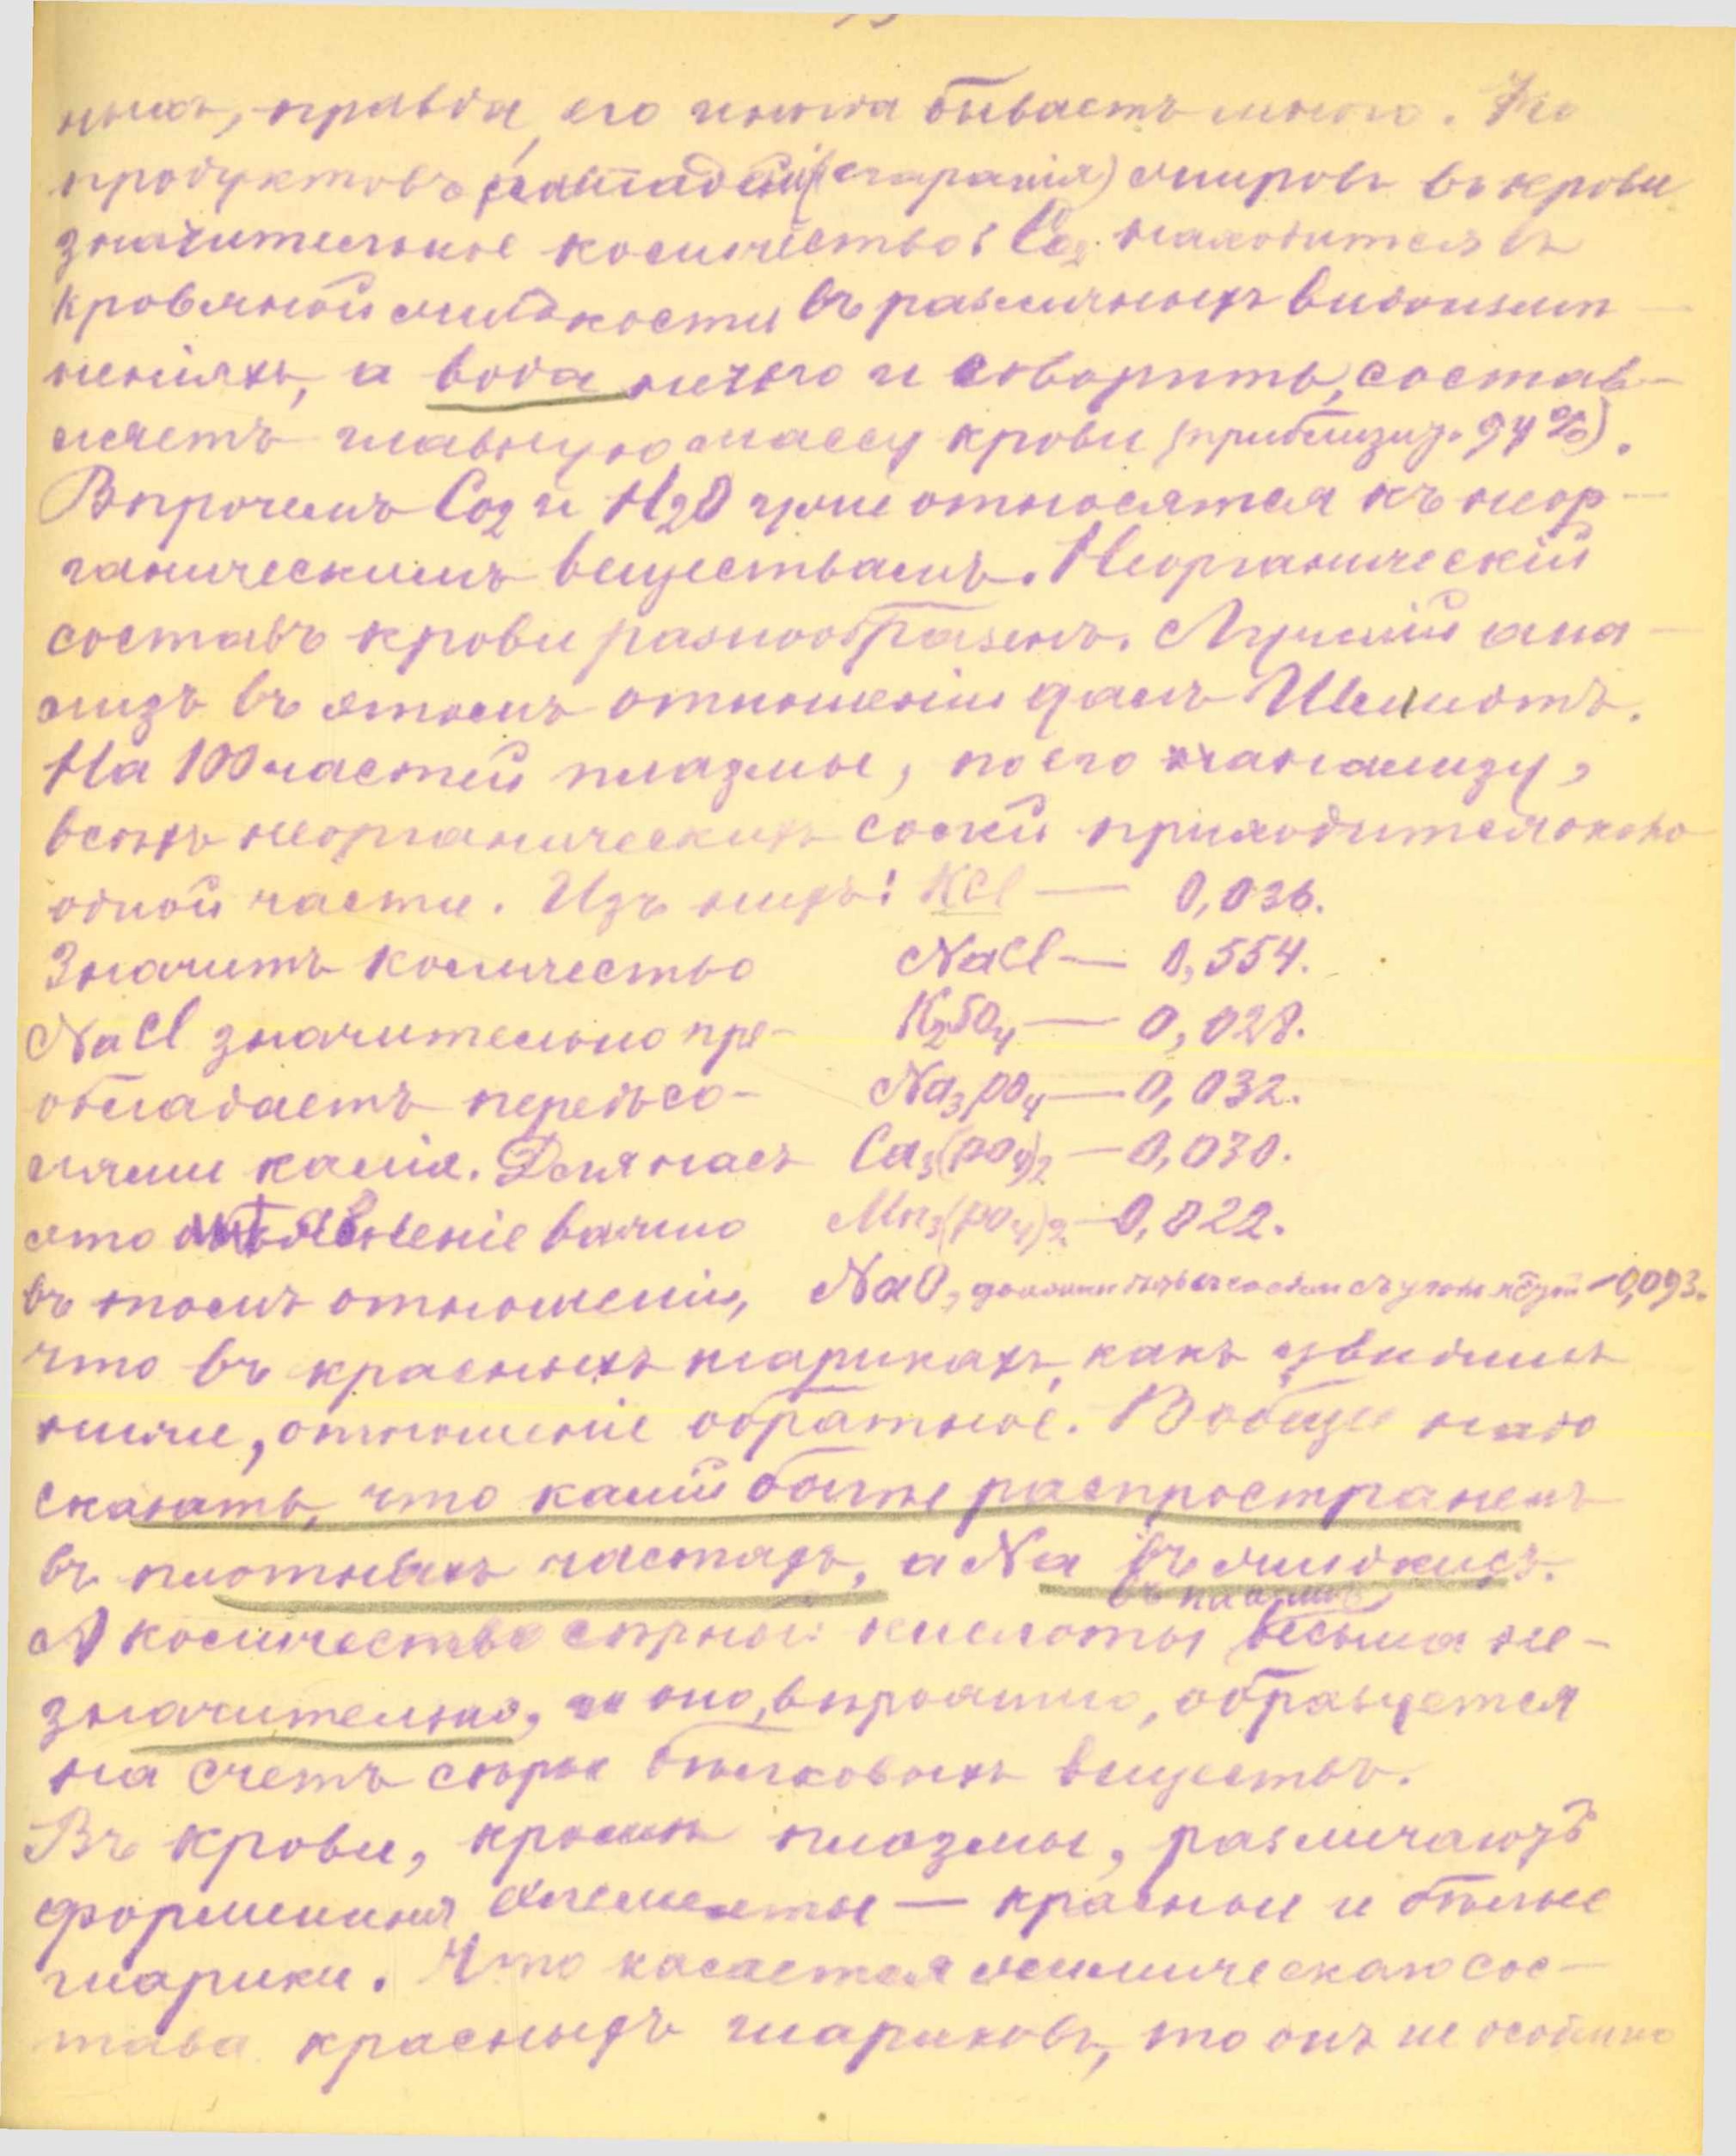 ныхъ, правда, его иногда бываетъ много. Но
продуктовъ распаденія (сгаранія) жировъ въ крови
значительное количество: Co2 находится въ
кровяной жидкости въ различныхъ видоизмѣ-
неніяхъ, а вода, нечего и говорить, состав-
ляетъ главную массу крови (приблизит. 94%).
Впрочемъ Co2 и H2O уже относятся къ неор-
ганическимъ веществамъ. Неорганическій
составъ крови разнообразенъ. Лучшій ана-
лизъ въ этомъ отношеніи далъ Шмидтъ.
На 100 частей плазмы, по его анализу,
всѣхъ неорганическихъ солей приходится около
одной части. Изъ нихъ: KCl — 0,036.
Значитъ количество NaCl — 0,554.
NaCl значительно пре- K2SO4 — 0,028.
обладаетъ передъ со- Na3PO4 — 0,032.
лями калія. Для насъ Ca3(PO4)2 — 0,030.
это явленіе важно Mn3(PO4)2 — 0,022.
въ томъ отношеніи, NaO, — 0,093.
что въ красныхъ шарикахъ, какъ увидимъ
ниже, отношеніе обратное. Вообще надо
сказать, что калій болѣе распространенъ
въ плотныхъ частяхъ, а Na въ жидкихъ.
въ плазмѣ
А количество сѣрной кислоты весьма не-
значительно, и оно, вѣроятно, образуется
на счетъ сѣры бѣлковыхъ веществъ.
Въ крови, кромѣ плазмы, различаютъ
форменные элементы — красные и бѣлые
шарики. Что касается химическаго сос-
тава красныхъ шариковъ, то онъ не особенно